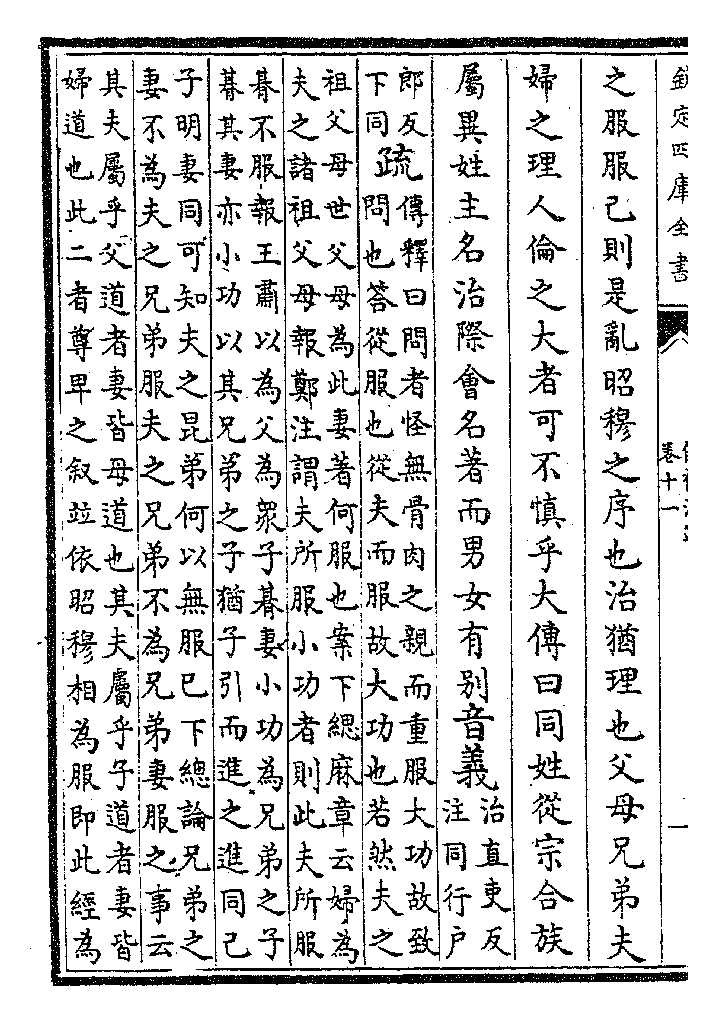 欽定四庫全書
卷十一
之服服己則是亂昭穆之序也治猶理也父母兄弟夫
婦之理人倫之大者可不慎乎大傳曰同姓從宗合族
屬異姓主名治際會名著而男女有別音義治直吏反
注同行户
郎反
下同疏傳釋曰問者怪無骨肉之親而重服大功故致
問也答從服也從夫而服故大功也若然夫之
祖父母世父母為此妻著何服也案下緦麻章云婦為
夫之諸祖父母報鄭注謂夫所服小功者則此夫所服
朞不服報王肅以為父為衆子朞妻小功為兄弟之子
朞其妻亦小功以其兄弟之子猶子引而進之進同己
子明妻同可知夫之昆弟何以無服已下總論兄弟之
妻不為夫之兄弟服夫之兄弟不為兄弟妻服之事云
其夫屬乎父道者妻皆母道也其夫屬乎子道者妻皆
婦道也此二者尊卑之叙竝依昭穆相為服即此經為